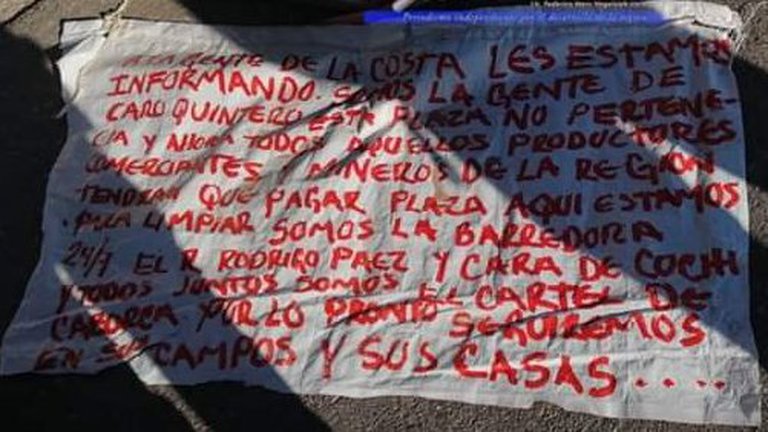 Periodismo independiente por el desarrollo de la región
GENTE DE LA COSTA LES ESTAMOS
INFORMANDO. SOMOS LA GENTE DE
CARO QUINTERO ESTA PLAZA NO PERTENE-
CIA Y AHORA TODOS AQUELLOS PRODUCTORES
COMERCIANTES Y MINEROS DE LA REGION
TENDRAN QUE PAGAR PLAZA AQUI ESTAMOS
PARA LIMPIAR SOMOS LA BARREDORA
24/7 EL R RODRIGO PAEZ Y CARA DE COCHI
Y TODOS JUNTOS SOMOS EL CARTEL DE
CABORCA Y POR LO PRONTO SEGUIREMOS
EN SUS CAMPOS Y SUS CASAS....